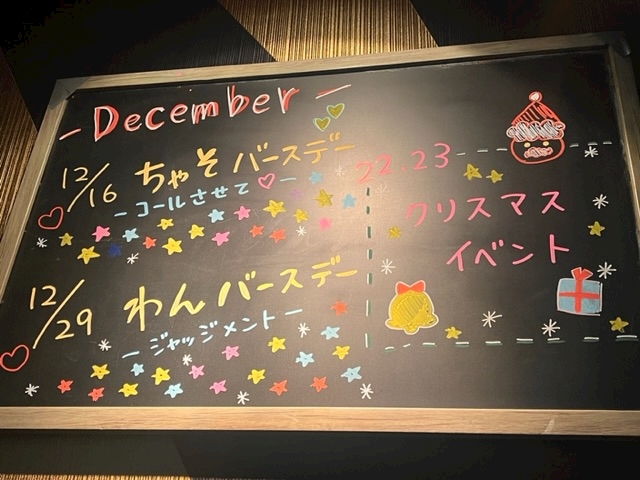 - December -
12/16 ちゃそ バースデー
- コールさせて♡ -
12/29 わん バースデー
- ジャッジメント -
22.23
クリスマス
イベント